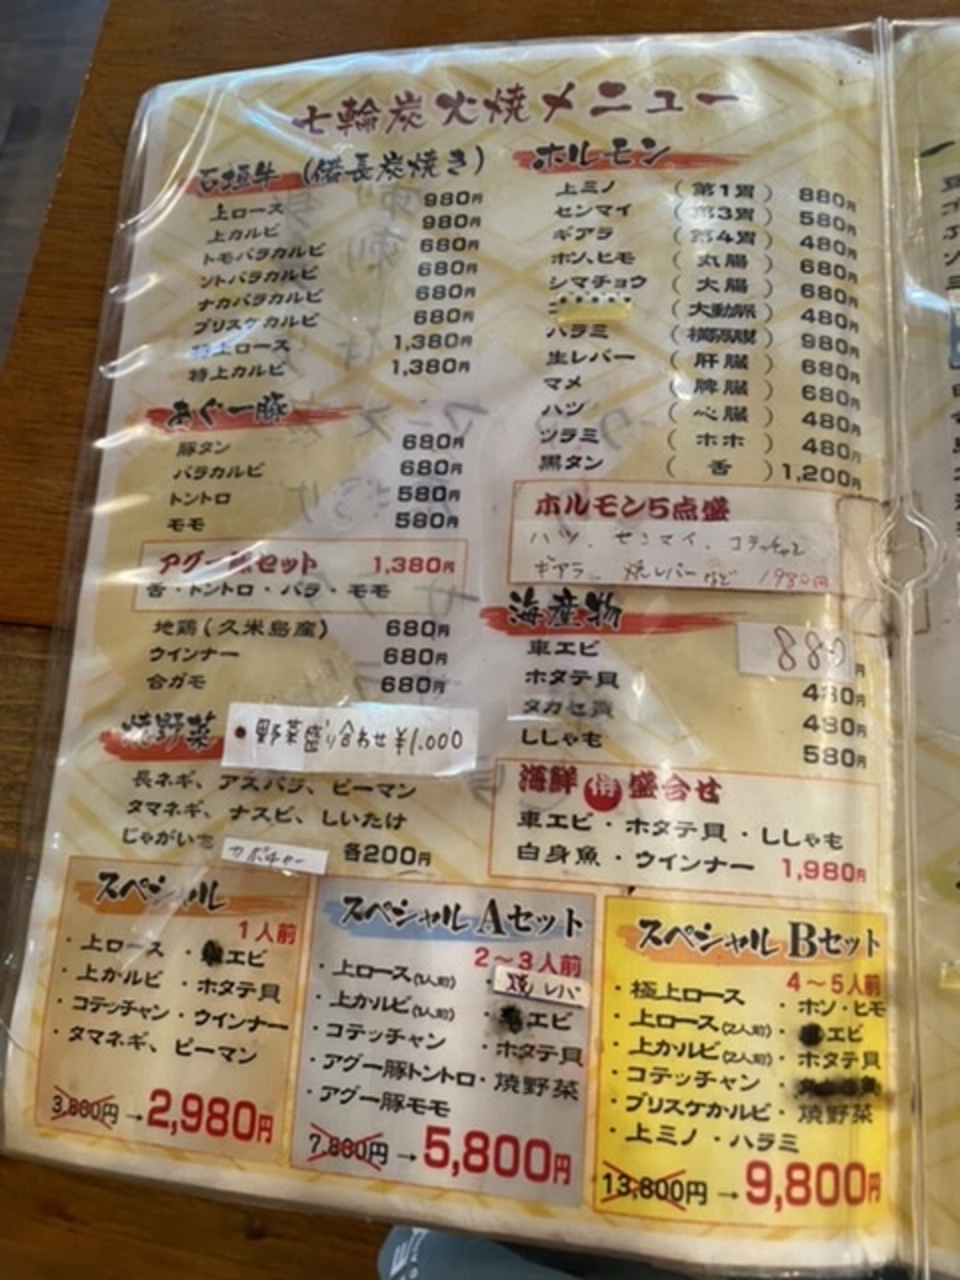 七輪炭火焼メニュー
石垣牛 (備長炭焼き)
上ロース 980円
上カルビ 980円
トモバラカルビ 680円
ントバラカルビ 680円
ナカバラカルビ 680円
ブリスケカルビ 680円
特上ロース 1,380円
特上カルビ 1,380円
あぐー豚
豚タン 680円
バラカルビ 680円
トントロ 580円
モモ 580円
アグー豚セット 1,380円
舌・トントロ・バラ・モモ
地鶏(久米島産) 680円
ウインナー 680円
合ガモ 680円
焼野菜
●野菜盛り合わせ ¥1.000
長ネギ、アスパラ、ピーマン
タマネギ、ナスビ、しいたけ
じゃがいも カボチャー 各200円
ホルモン
上ミノ (第1胃) 880円
センマイ (第3胃) 580円
ギアラ (第4胃) 480円
ホソ、ヒモ (丸腸) 680円
シマチョウ (大腸) 680円
(大動脈) 480円
ハラミ (横隔膜) 980円
生レバー (肝臓) 680円
マメ (脾臓) 680円
ハツ (心臓) 480円
ツラミ (ホホ) 480円
黒タン (舌) 1,200円
ホルモン5点盛
ハツ、センマイ、コテッチャン
ギアラ、焼レバーなど 1980円
海産物
車エビ 880円
ホタテ貝 480円
タカセ貝 480円
ししゃも 580円
海鮮得盛合せ
車エビ・ホタテ貝・ししゃも
白身魚・ウインナー 1,980円
スペシャル
1人前
・上ロース ・エビ
・上かルビ ・ホタテ貝
・コテッチャン・ウインナー
・タマネギ、ピーマン
3,800円→2,980円
スペシャルAセット
2〜3人前
・上ロース(1人前) ・焼レバー
・上かルビ(1人前) ・エビ
・コテッチャン ・ホタテ貝
・アグー豚トントロ・焼野菜
・アグー豚モモ
7,800円→5,800円
スペシャルBセット
4〜5人前
・極上ロース ・ホソ・ヒモ
・上ロース(2人前)・エビ
・上かルビ(2人前)・ホタテ貝
・コテッチャン
・ブリスケかルビ・焼野菜
・上ミノ・ハラミ
13,800円→9,800円